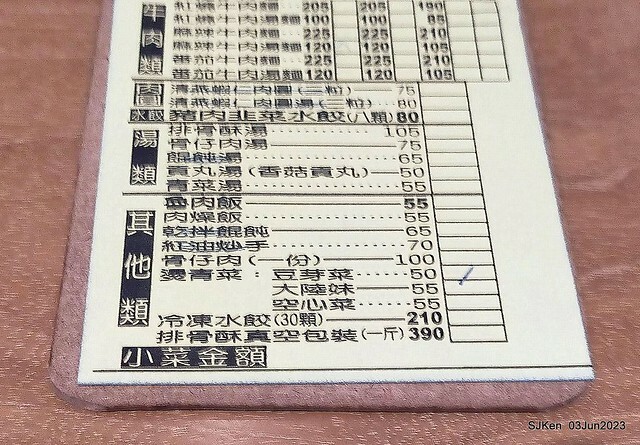 牛肉類
紅燒牛肉麵 205 205 190
紅燒牛肉湯麵 100 100 85
麻辣牛肉麵 225 225 210
麻辣牛肉湯麵 120 120 105
番茄牛肉麵 225 225 210
番茄牛肉湯麵 120 120 105
肉圓
清蒸蝦仁肉圓(二粒) 75
清蒸蝦仁肉圓湯(二粒) 80
水餃 豬肉韭菜水餃(八顆) 80
湯類
排骨酥湯 105
骨仔肉湯 75
餛飩湯 65
貢丸湯(香菇貢丸) 50
青菜湯 55
其他類
魯肉飯 55
肉燥飯 55
乾拌餛飩 65
紅油炒手 70
骨仔肉(一份) 100
燙青菜:豆芽菜 50
大陸妹 55
空心菜 55
冷凍水餃(30顆) 210
排骨酥真空包裝(一斤) 390
小菜金額
SJKen 03Jun2023